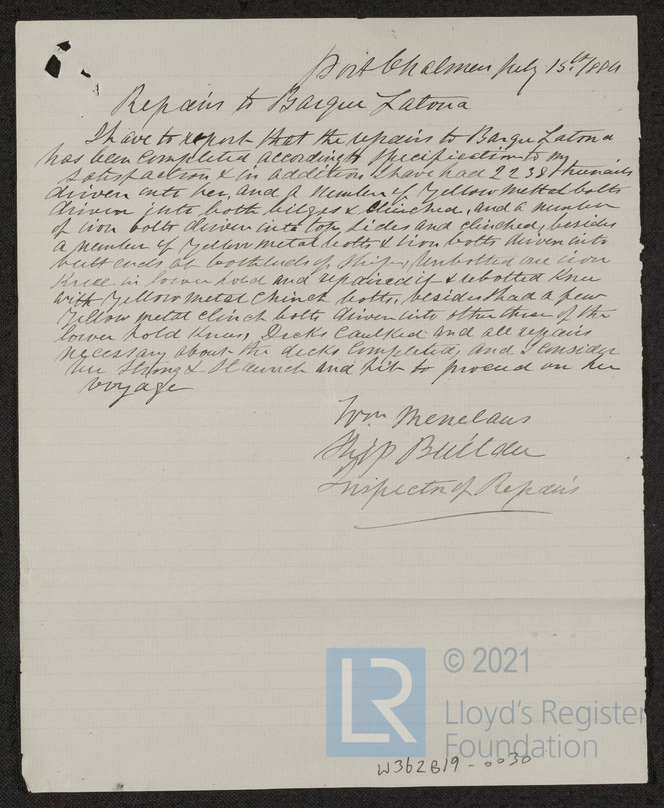 Port Chalmers July 15th/884
Repairs to Barque Latona
I have to report that the repairs to Barque Latona
has been Completed according to Specification to my
Satisfaction & in addition, I have had 2238 treenails
driven into her, and a number of Yellow metal bolts
driven into both bilges & clinched, and a number
of iron bolts driven into top sides and clinched, besides
a number of Yellow metal bolts & iron bolts driven into
butt ends at both ends of Ship, Unbolted one iron
Knee in lower hold and repaired it & rebolted Knee
with Yellow metal Clinch bolts, besides had a few
Yellow metal clinch bolts driven into other three of the
lower hold Knees, Decks Caulked and all repairs
necessary about the decks Completed, and I consider
her Strong & Staunch and fit to proceed on her
voyage
Wm Menelaus
Ship Builder
Inspector of Repairs
LR © 2021
Lloyd's Register
Foundation
W362B19-0030